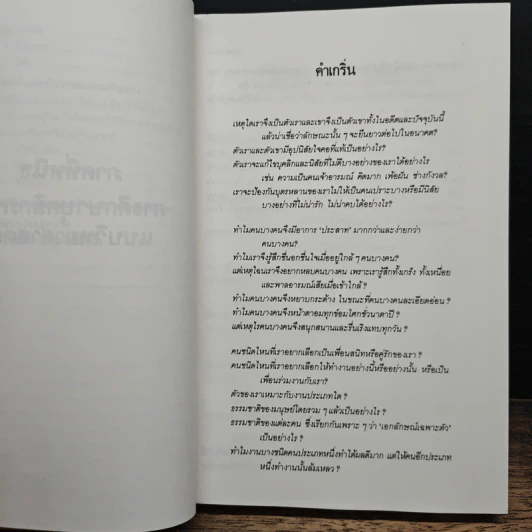 คำเกริ่น
เหตุใดเราจึงเป็นตัวเราและเขาจึงเป็นตัวเขาทั้งในอดีตและปัจจุบันนี้
แล้วน่าเชื่อว่าลักษณะนั้น ๆ จะยืนยาวต่อไปในอนาคต?
ตัวเราและตัวเขามีอุปนิสัยใจคอที่แท้เป็นอย่างไร?
ตัวเราจะแก้ไขบุคลิกและนิสัยที่ไม่ดีบางอย่างของเราได้อย่างไร
เช่น ความเป็นคนเจ้าอารมณ์ คิดมาก เพ้อฝัน ช่างกังวล?
เราจะป้องกันบุตรหลานของเราไม่ให้เป็นคนเปราะบางหรือมีนิสัย
บางอย่างที่ไม่น่ารัก ไม่น่าคบได้อย่างไร?
ทำไมคนบางคนจึงมีอาการ 'ประสาท' มากกว่าและง่ายกว่า
คนบางคน?
ทำไมเราจึงรู้สึกชื่นอกชื่นใจเมื่ออยู่ใกล้ ๆ คนบางคน?
แต่เหตุไฉนเราจึงอยากหลบคนบางคน เพราะเรารู้สึกทั้งเกร็ง ทั้งเหนื่อย
และพาลอารมณ์เสียเมื่อเข้าใกล้ ?
ทำไมคนบางคนจึงหยาบกระด้าง ในขณะที่คนบางคนละเอียดอ่อน ?
ทำไมคนบางคนจึงหน้าตาอมทุกข์อมโศกชั่วนาตาปี ?
แต่เหตุไรคนบางคนจึงสนุกสนานและรื่นเริงแทบทุกวัน ?
คนชนิดไหนที่เราอยากเลือกเป็นเพื่อนสนิทหรือคู่รักของเรา ?
คนชนิดไหนที่เราอยากเลือกให้ทำงานอย่างนี้หรืออย่างนั้น หรือเป็น
เพื่อนร่วมงานกับเรา?
ตัวของเราเหมาะกับงานประเภทใด ?
ธรรมชาติของมนุษย์โดยรวม ๆ แล้วเป็นอย่างไร ?
ธรรมชาติของแต่ละคน ซึ่งเรียกกันเพราะ ๆ ว่า 'เอกลักษณ์เฉพาะตัว'
เป็นอย่างไร ?
ทำไมงานบางชนิดคนประเภทหนึ่งทำได้ผลดีมาก แต่ให้คนอีกประเภท
หนึ่งทำงานนั้นล้มเหลว ?